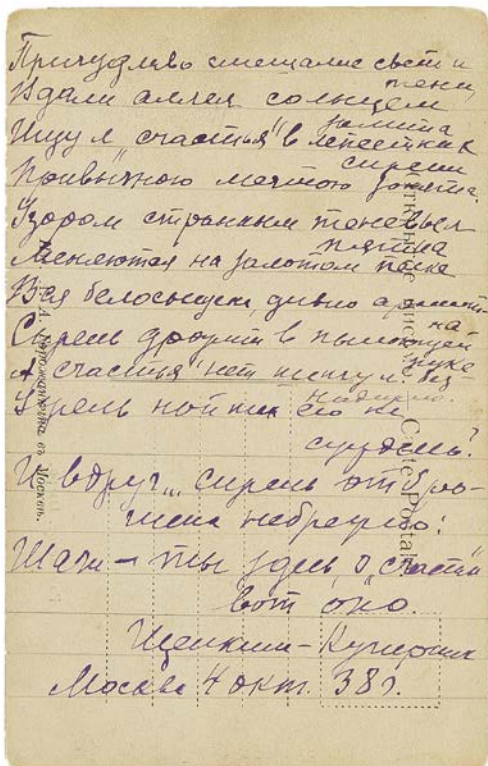 Причудливо смешались свет и
тени,
Вдали аллея солнцем
залита
Ищу я „счастья" в лепестках
сирени
Привычною мечтою занята.
Узором странным теневые
пятна
Меняются на золотом песке
Вся белоснежна, дивно аромат-
на
Сирень дрожит в пылающей
руке
А счастья нет ищу... без-
надежно.
Ужель найти его не
суждено?
И вдруг... сирень отбро-
шена небрежно:
Шаги – ты здесь, о „счастье"
вот оно.
Щепкина-Куперник
Москва 4 окт. 38 г.
въ Москвѣ.
Carte Postale